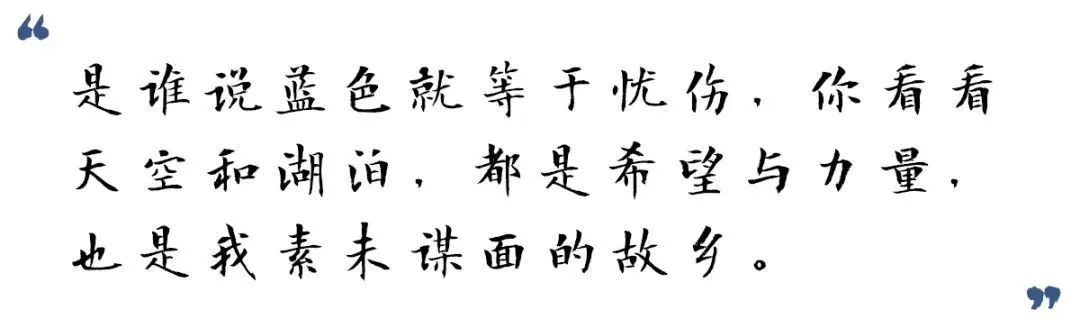 “
是谁说蓝色就等于忧伤，你看看
天空和湖泊，都是希望与力量，
也是我素未谋面的故乡。
”